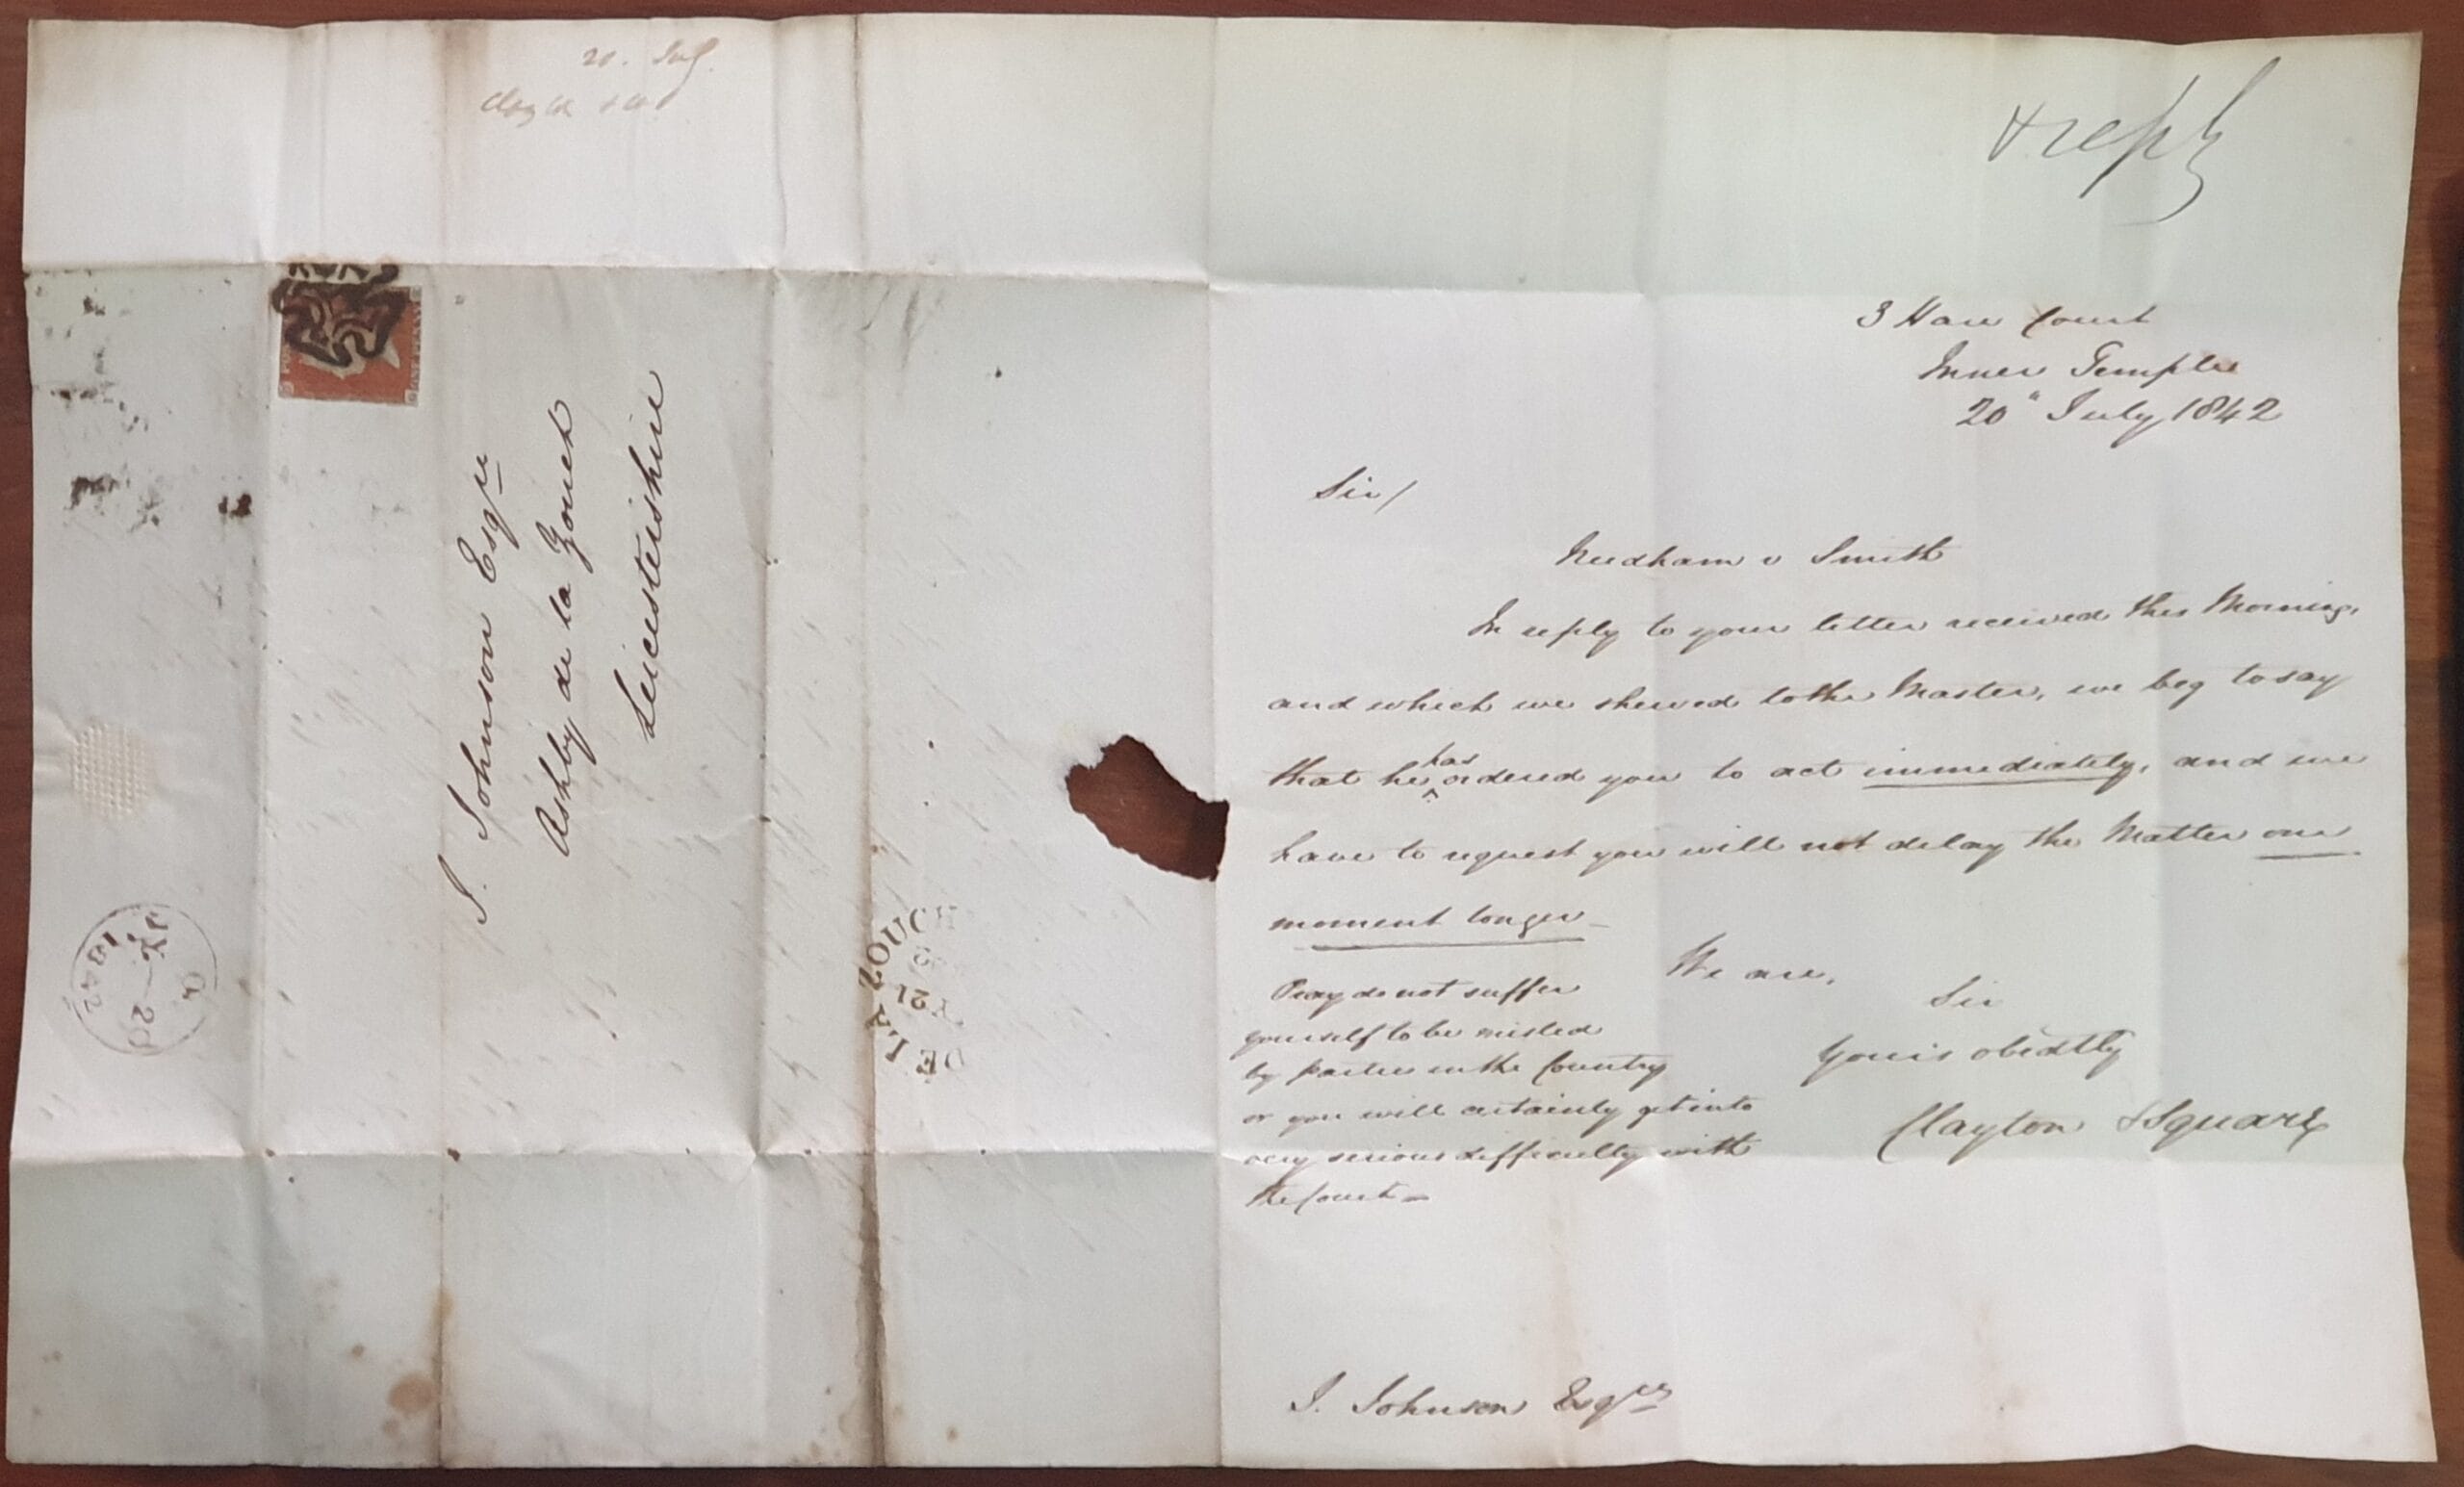 20. July
& reply
3 Hare Court
Inner Temple
20" July 1842
Sir/
Needham v Smith
In reply to your letter received this Morning,
and which we shewed to the Master, we beg to say
that he has ordered you to act immediately, and we
have to request you will not delay the Matter one
moment longer
We are,
Sir
Yours obedtly
Clayton & Square
Pray do not suffer
yourself to be misled
by parties in the Country
or you will certainly get into
very serious difficulty with
the Court
J. Johnson Esqre
J. Johnson Esqre
Ashby de la Zouch
Leicestershire
JY 20
1842
DE LA ZOUCH
21